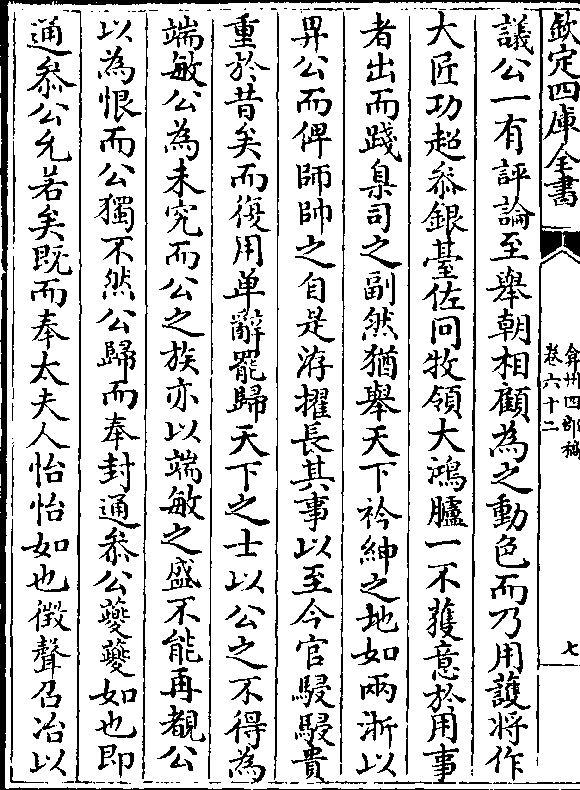 欽定四庫全書
弇州四部稿
卷六十二
七
議公一有評論至舉朝相顧為之動色而乃用護將作
大匠功超叅銀臺佐冏牧領大鴻臚一不獲意於用事
者出而踐臬司之副然猶舉天下衿紳之地如兩浙以
畀公而俾師帥之自是洊擢長其事以至今官駸駸貴
重於昔矣而復用单辭罷歸天下之士以公之不得為
端敏公為未究而公之族亦以端敏之盛不能再覩公
以為恨而公獨不然公歸而奉封通叅公夔夔如也即
通叅公允若矣既而奉太夫人怡怡如也徴聲召冶以